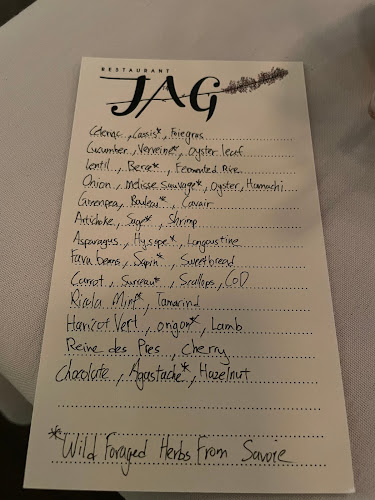 RESTAURANT
JAG
Celeriac, Cassis*, Foiegras
Cucumber, Verveine*, Oyster leaf
Lentil, Berce*, Fermented Rice
Onion, Mélisse Sauvage*, Oyster, Hamachi
Greenpea, Bouleau*, Caviar
Artichoke, Sage*, Shrimp
Asparagus, Hysope*, Langoustine
Fava beans, Sapin*, Sweetbread
Carrot, Sureau*, Scallops, COD
Ricola Mint*, Tamarind
Haricot Vert, origan*, Lamb
Reine des Prés, Cherry
Chocolate, Agastache*, Hazelnut
*Wild Foraged Herbs From Savoie